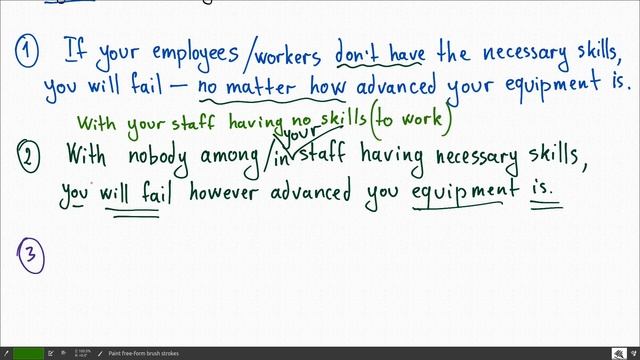 ① If your employees/workers don't have the necessary skills,
you will fail — no matter how advanced your equipment is.
With your staff having no skills (to work)
your
② With nobody among/in staff having necessary skills,
you will fail however advanced you equipment is.
③
Paint free-form brush strokes